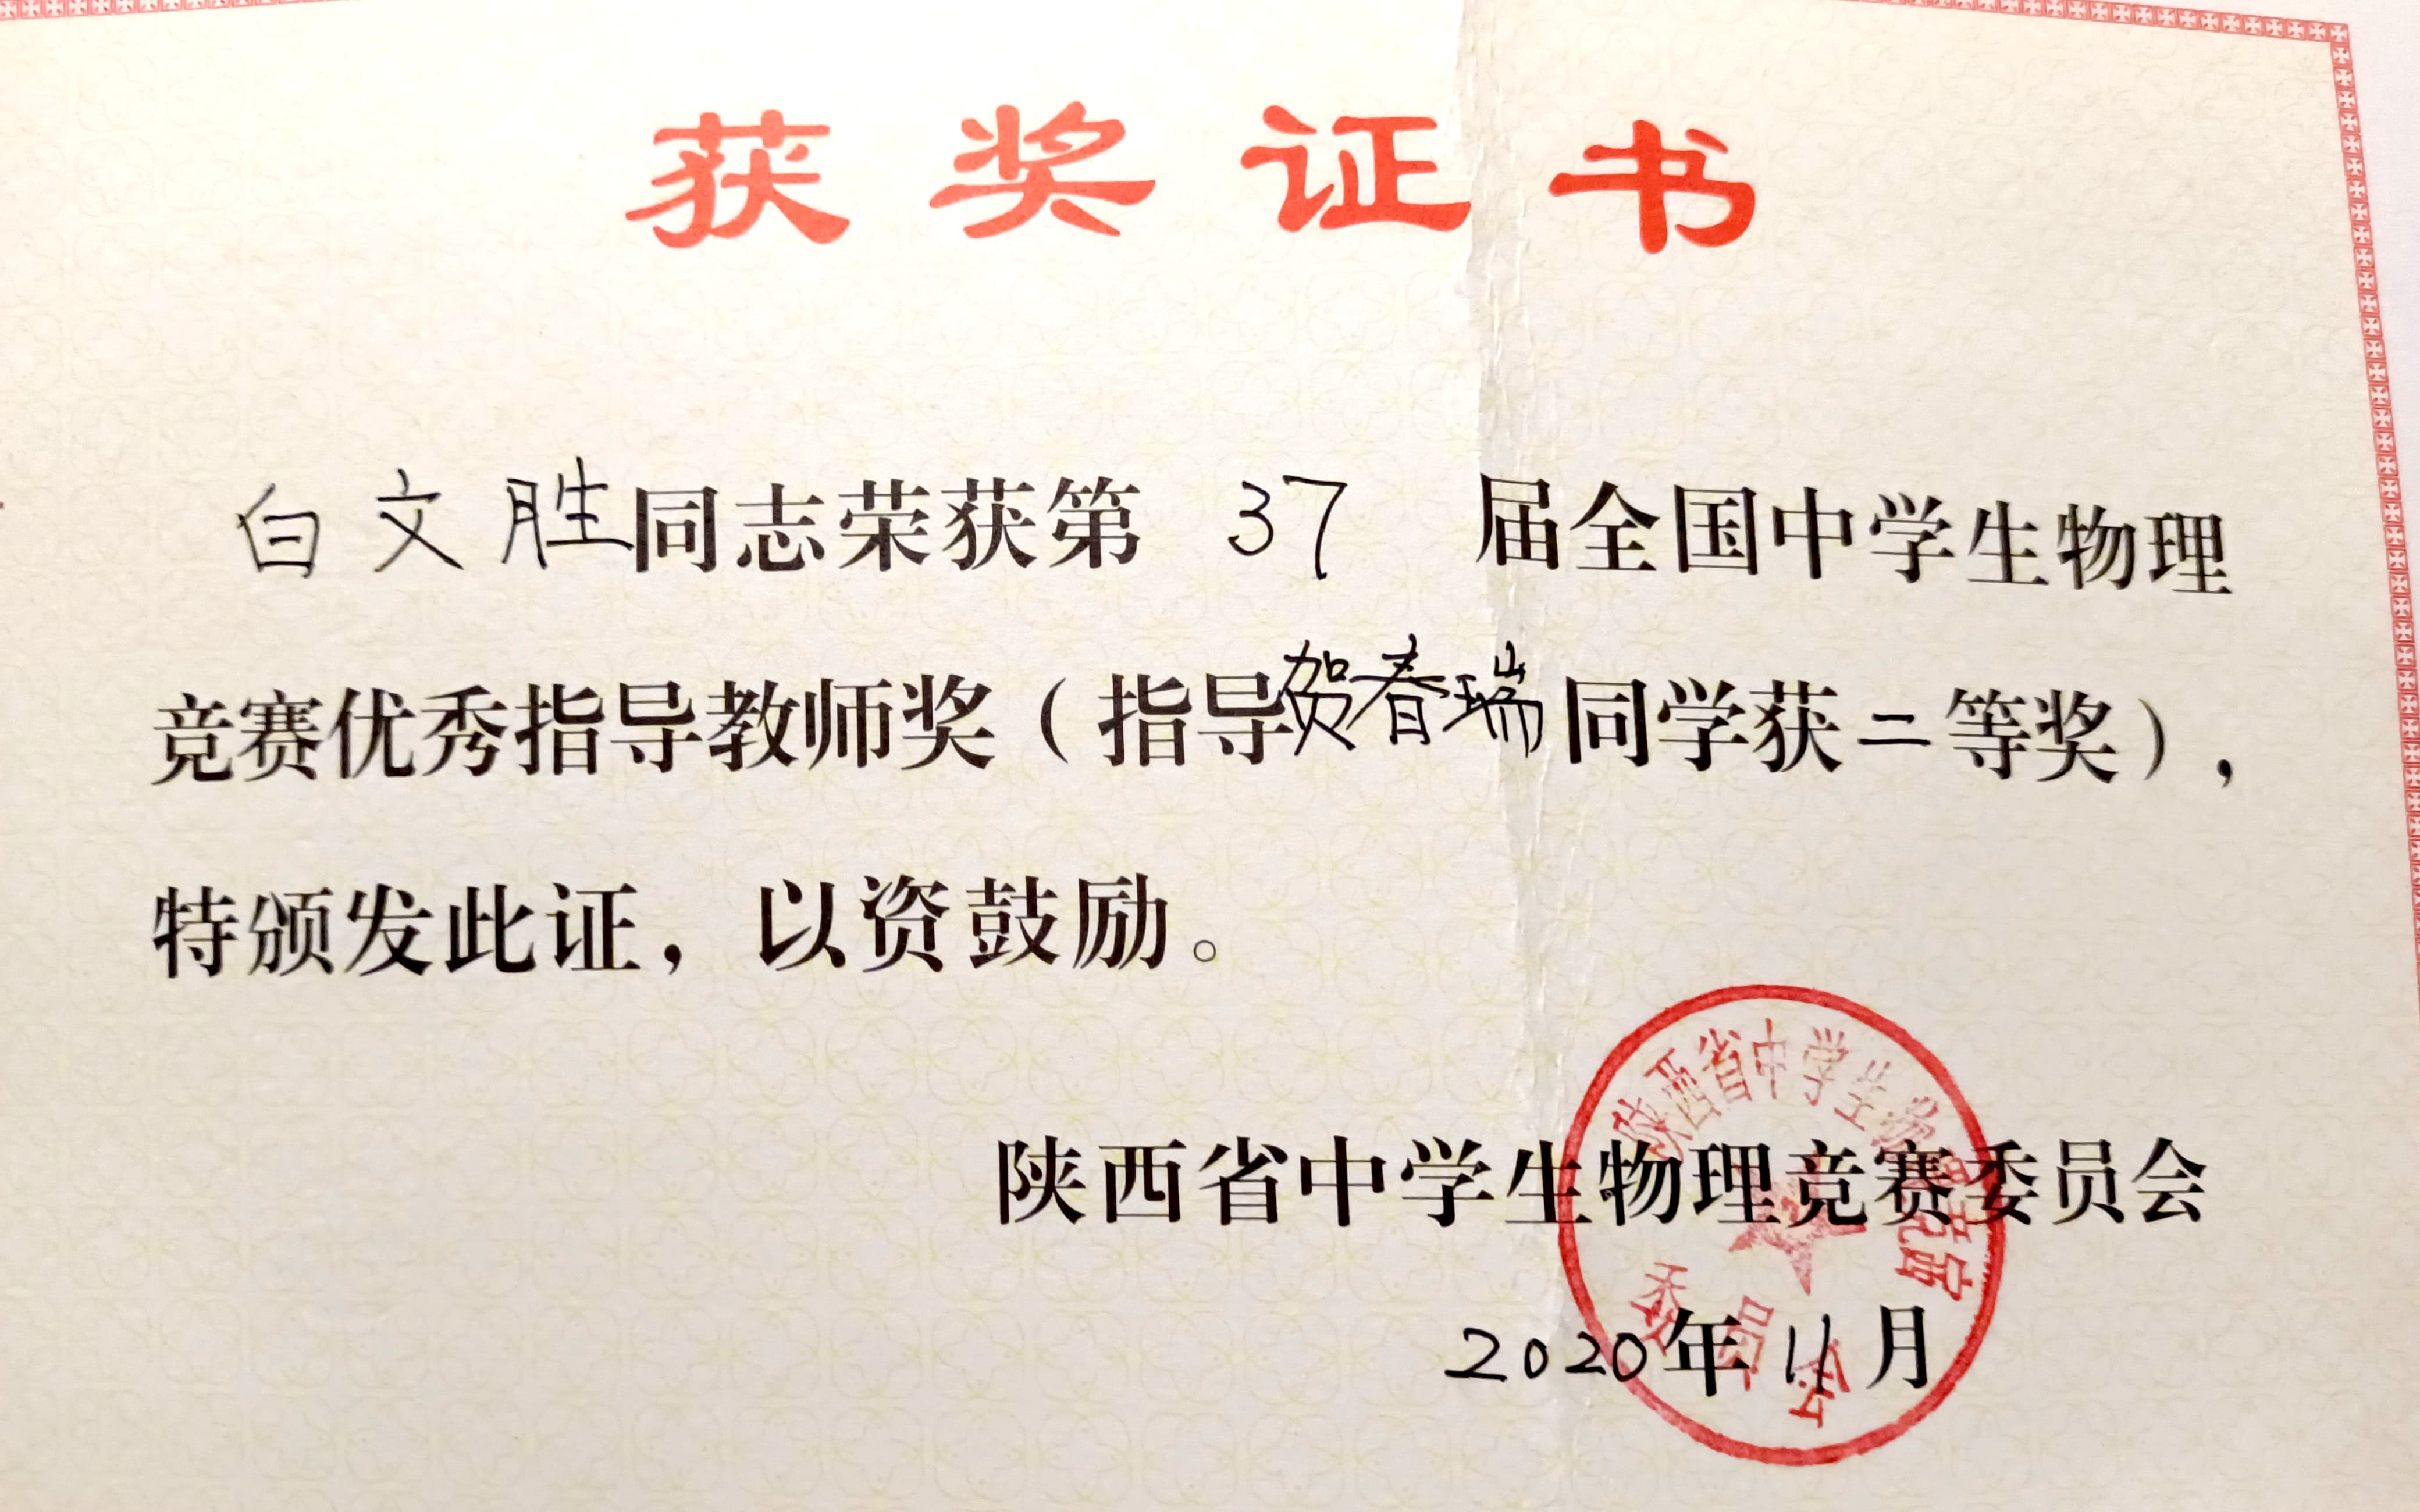 获奖证书
白文胜同志荣获第 37 届全国中学生物理
竞赛优秀指导教师奖（指导贺春瑞同学获二等奖），
特颁发此证，以资鼓励。
陕西省中学生物理竞赛委员会
2020年11月
陕西省中学生物理竞赛
委员会